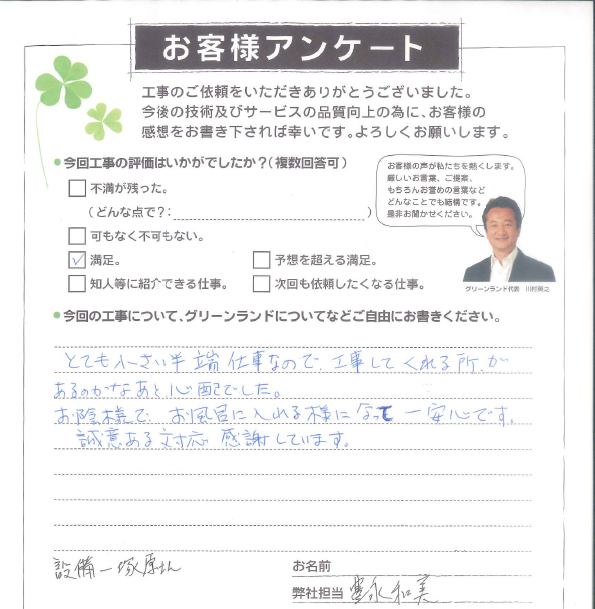 お客様アンケート
工事のご依頼をいただきありがとうございました。
今後の技術及びサービスの品質向上の為に、お客様の
感想をお書き下されば幸いです。よろしくお願いします。
●今回工事の評価はいかがでしたか？（複数回答可）
お客様の声が私たちを熱くします。
厳しいお言葉、ご提案、
もちろんお誉めの言葉など
どんなことでも結構です。
是非お聞かせください。
不満が残った。
（どんな点で？：　）
可もなく不可もない。
満足。
予想を超える満足。
知人等に紹介できる仕事。
次回も依頼したくなる仕事。
グリーンランド代表　川村英之
●今回の工事について、グリーンランドについてなどご自由にお書きください。
とても小さい半端仕事なので、工事してくれる所が
あるのかなあと心配でした。
お陰様で、お風呂に入れる様になって一安心です。
誠意ある対応感謝しています。
設備－塚原さん
お名前
弊社担当 和美